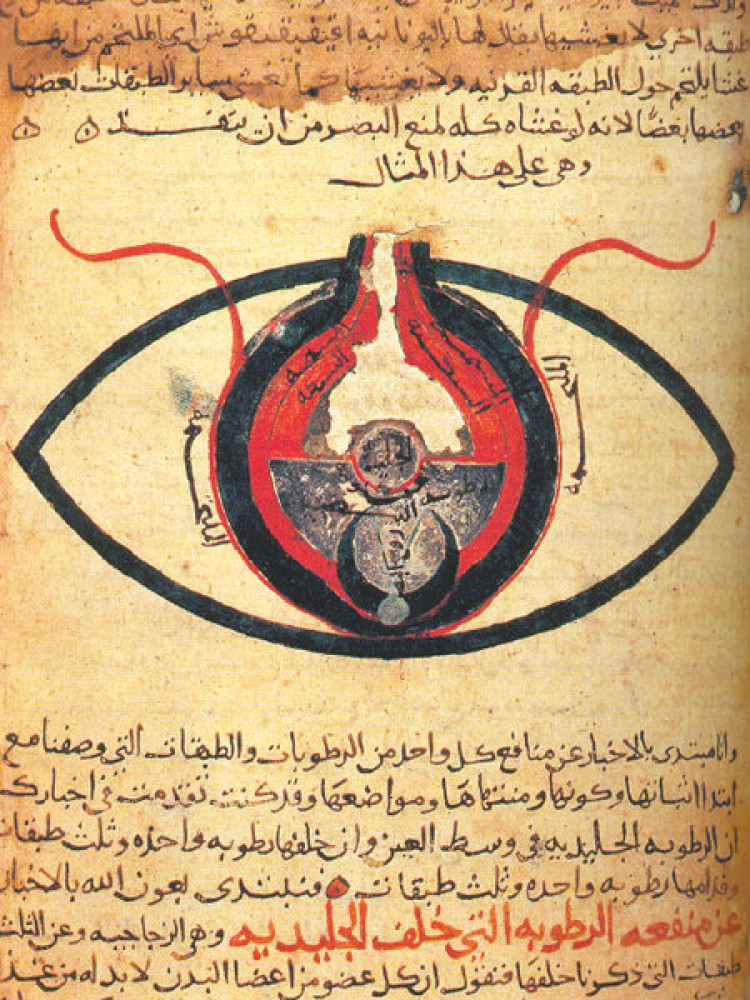 طبقه اخرى لا تغشيها يقال لها باليونانيه اى الملتحم من انها
غشا يلتحم حول الطبقه القرنيه ولا يغشيها كما تغشى ساير الطبقات بعضها
بعضها بعضا لانه لو غشاه كله لمنع البصر من ان ينفذ ه ه
وهى على هذا المثال
الجليديه
الرطوبه البيضيه
الملتحم
وانا مبتدى بالاخبار عن منافع كل واحد من الرطوبات والطبقات التى وصفنا مع
ابتدا اتيانها وكونها ومنتهاها ومواضعها وقد كنت تقدمت فى اخبارك
ان الرطوبه الجليديه فى وسط العين وان خلفها رطوبه واحده وثلث طبقات
وقدامها رطوبه واحده وثلث طبقات ه فنبتدى بعون الله بالاخبار
عن منفعه الرطوبه التى خلف الجليديه وهى الزجاجيه وعن الثلث
طبقات التى ذكرنا خلفها فنقول ان كل عضو من اعضا البدن لا بد له من غذا